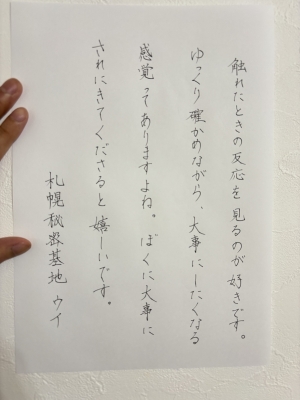 触れたときの反応を見るのが好きです。
ゆっくり確かめながら、大事にしたくなる
感覚ってありますよね。ぼくに大事に
されにきてくださると嬉しいです。
札幌秘密基地 ウイ